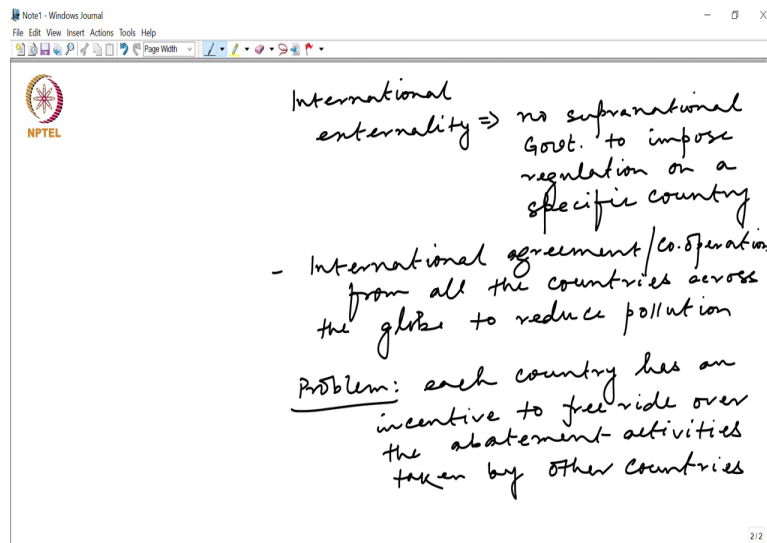 Note1 - Windows Journal
File Edit View Insert Actions Tools Help
Page Width
NPTEL
International
externality ⇒ no supranational
Govt. to impose
regulation on a
specific country
- International agreement/co.operation
from all the countries across
the globe to reduce pollution
Problem: each country has an
incentive to free ride over
the abatement activities
taken by other countries
2/2